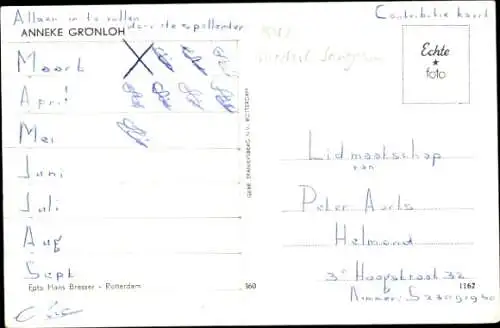 Alleen in te vullen
door de spullender
Contributie kaart
ANNEKE GRÖNLOH
Echte
foto
Maart
April
Mei
Juni
Juli
Aug
Sept
Foto Hans Bresser - Rotterdam
GEBR. SPANJERSBERG N.V., ROTTERDAM
Lidmaatschap
van
Peter Aarts
Helmond
3e Haagstraat 32
Nummer:
1162